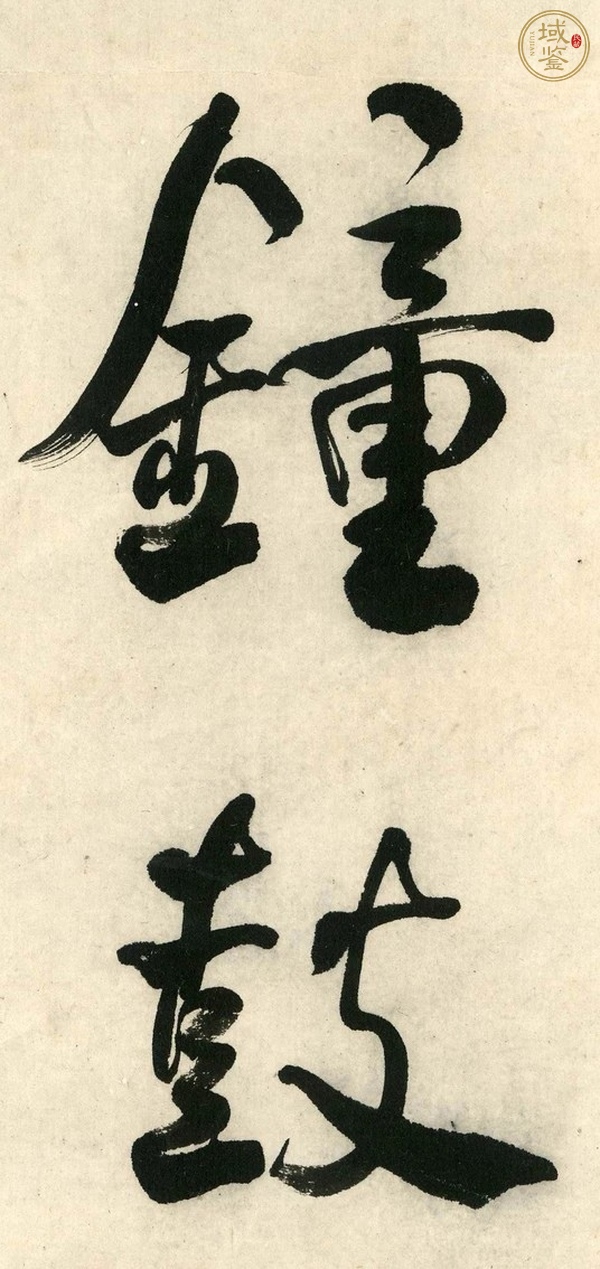 鐘
鼓
域鉴
YUJIAN